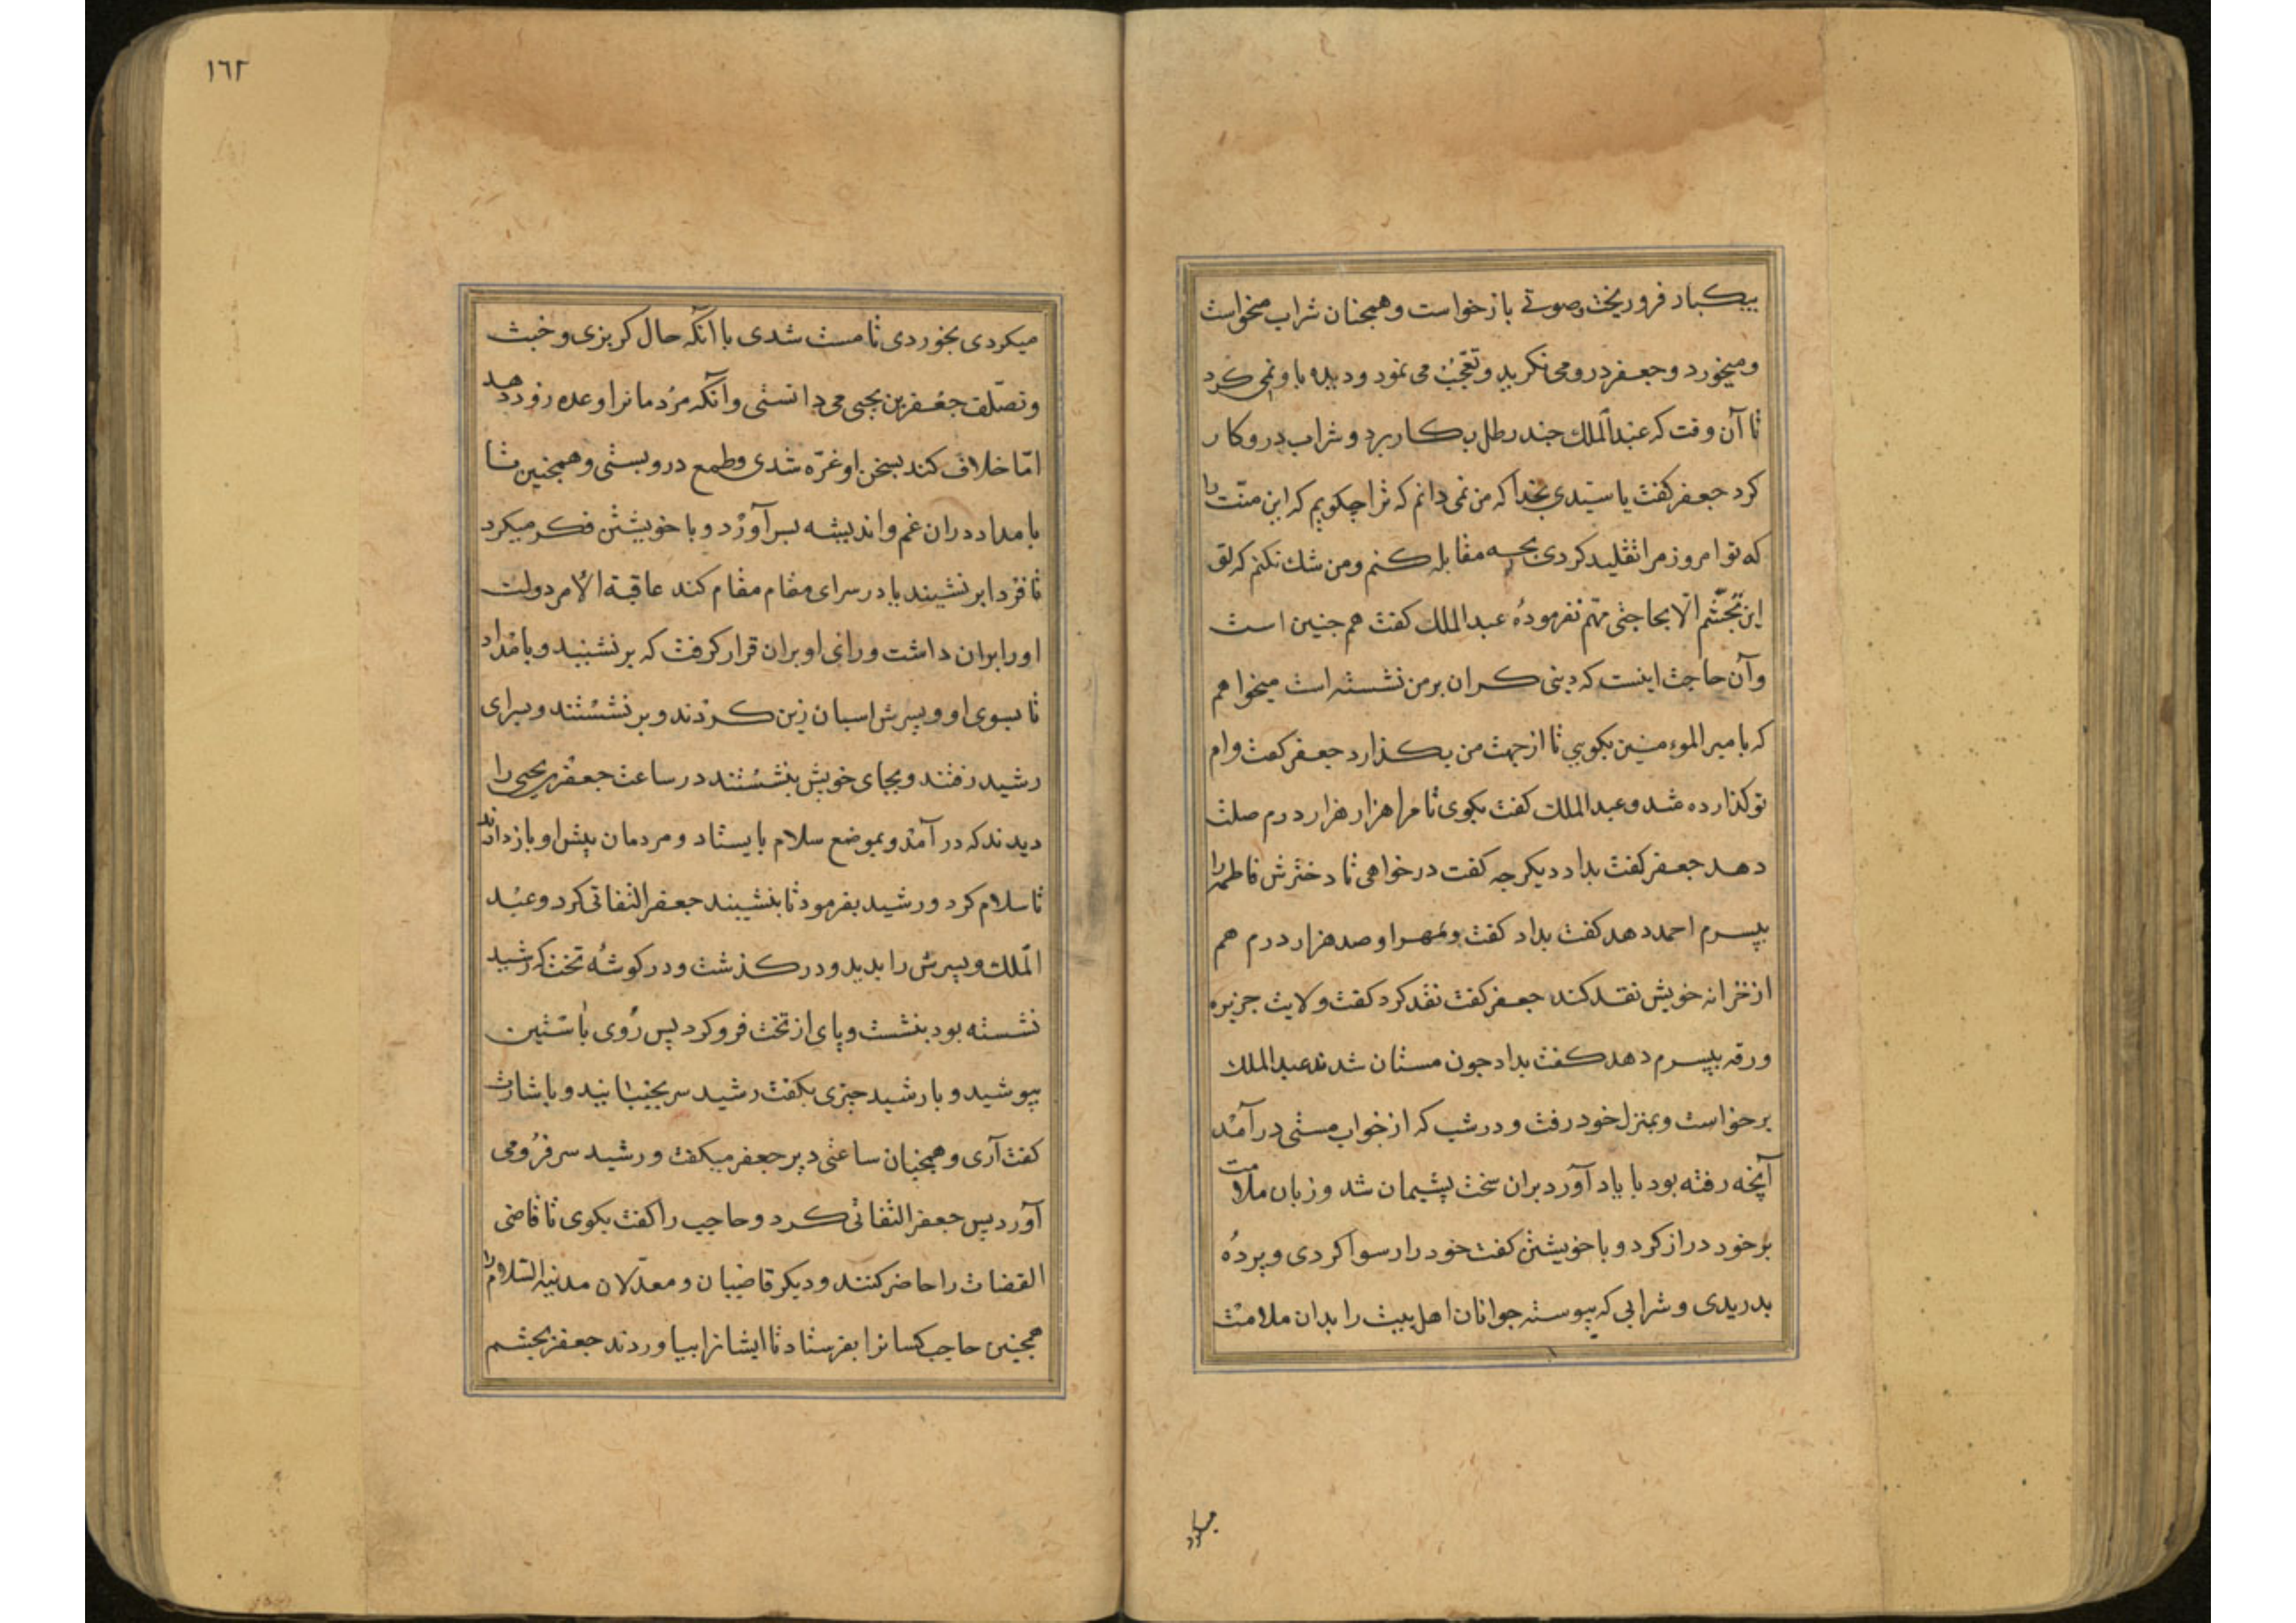 بیکبار فرو ریخت وصوتی باز خواست و همچنان شراب میخواست
ومیخورد و جعفر درو می نکرید و تعجّب می نمود ودیده باو نمی کرد
تا آن وقت که عبد الملك چند رطل بکار برد و شراب درو کار
کرد جعفر کفت یا سیّدی بخدا که من نمی دانم که ترا چکویم که این منّت را
که تو امروز مرا تقلید کردی بچه مقابله کنم ومن شك نکنم که تو
این تجشّم الّا بحاجتی مهم نفرمودهٔ عبد الملك کفت هم چنین است
وآن حاجت اینست که دینی کران بر من نشسته است میخواهم
که با میر الموءمنین بکویی تا از جهت من بکذارد جعفر کفت وام
تو کذارده شد وعبد الملك کفت بکوی تا مرا هزار هزار درم صلت
دهد جعفر کفت بداد دیکر چه کفت درخواهی تا دخترش فاطمه را
بپسرم احمد دهد کفت بداد کفت ومهر او صد هزار درم هم
از خزانه خویش نقد کند جعفر کفت نقد کرد کفت ولایت جزیره
ورقه بپسرم دهد کفت بداد چون مستان شدند عبد الملك
برخواست وبمنزل خود رفت و در شب که از خواب مستی در آمد
آنچه رفته بود با یاد آورد بران سخت پشیمان شد وزبان ملامت
بر خود دراز کرد و با خویشتن کفت خود را رسوا کردی و پردهٔ
بدریدی و شرابی که پیوسته جوانان اهل بیت را بدان ملامت
میکردی
١٦٢
میکردی بخوردی تا مست شدی با آنکه حال کربزی و خبث
وتصلّف جعفر بن یحیی می دانستی وآنکه مردمانرا وعده زود دهد
امّا خلاف کند بسخن او غرّه شدی وطمع درو بستی وهمچنین تا
بامداد دران غم و اندیشه بسر آورد و با خویشتن فکر میکرد
تا فردا بر نشیند یا در سرای مقام مقام کند عاقبة الأمر دولت
او را بران داشت ورای او بران قرار کرفت که بر نشیند و بامداد
تا بسوی او وپسرش اسبان زین کردند و بر نشستند و بسرای
رشید رفتند وبجای خویش بنشستند در ساعت جعفر یحیی را
دیدند که در آمد و بموضع سلام بایستاد و مردمان پیش او باز دادند
تا سلام کرد و رشید بفرمود تا بنشیند جعفر التفاتی کرد وعبد
الملك وپسرش را بدید ودر کذشت ودر کوشهٔ تخت که رشید
نشسته بود بنشست و پای از تخت فرو کرد پس روی باستین
بپوشید و با رشید چیزی بکفت رشید سر بجنبانید و باشارت
کفت آری و همچنان ساعتی دیر جعفر میکفت و رشید سر فرو می
آورد پس جعفر التفاتی کرد و حاجب را کفت بکوی تا قاضی
القضات را حاضر کنند و دیکر قاضیان و معدّلان مدینة السّلام را
همچنین حاجب کسانرا بفرستاد تا ایشانرا بیاوردند جعفر بچشم